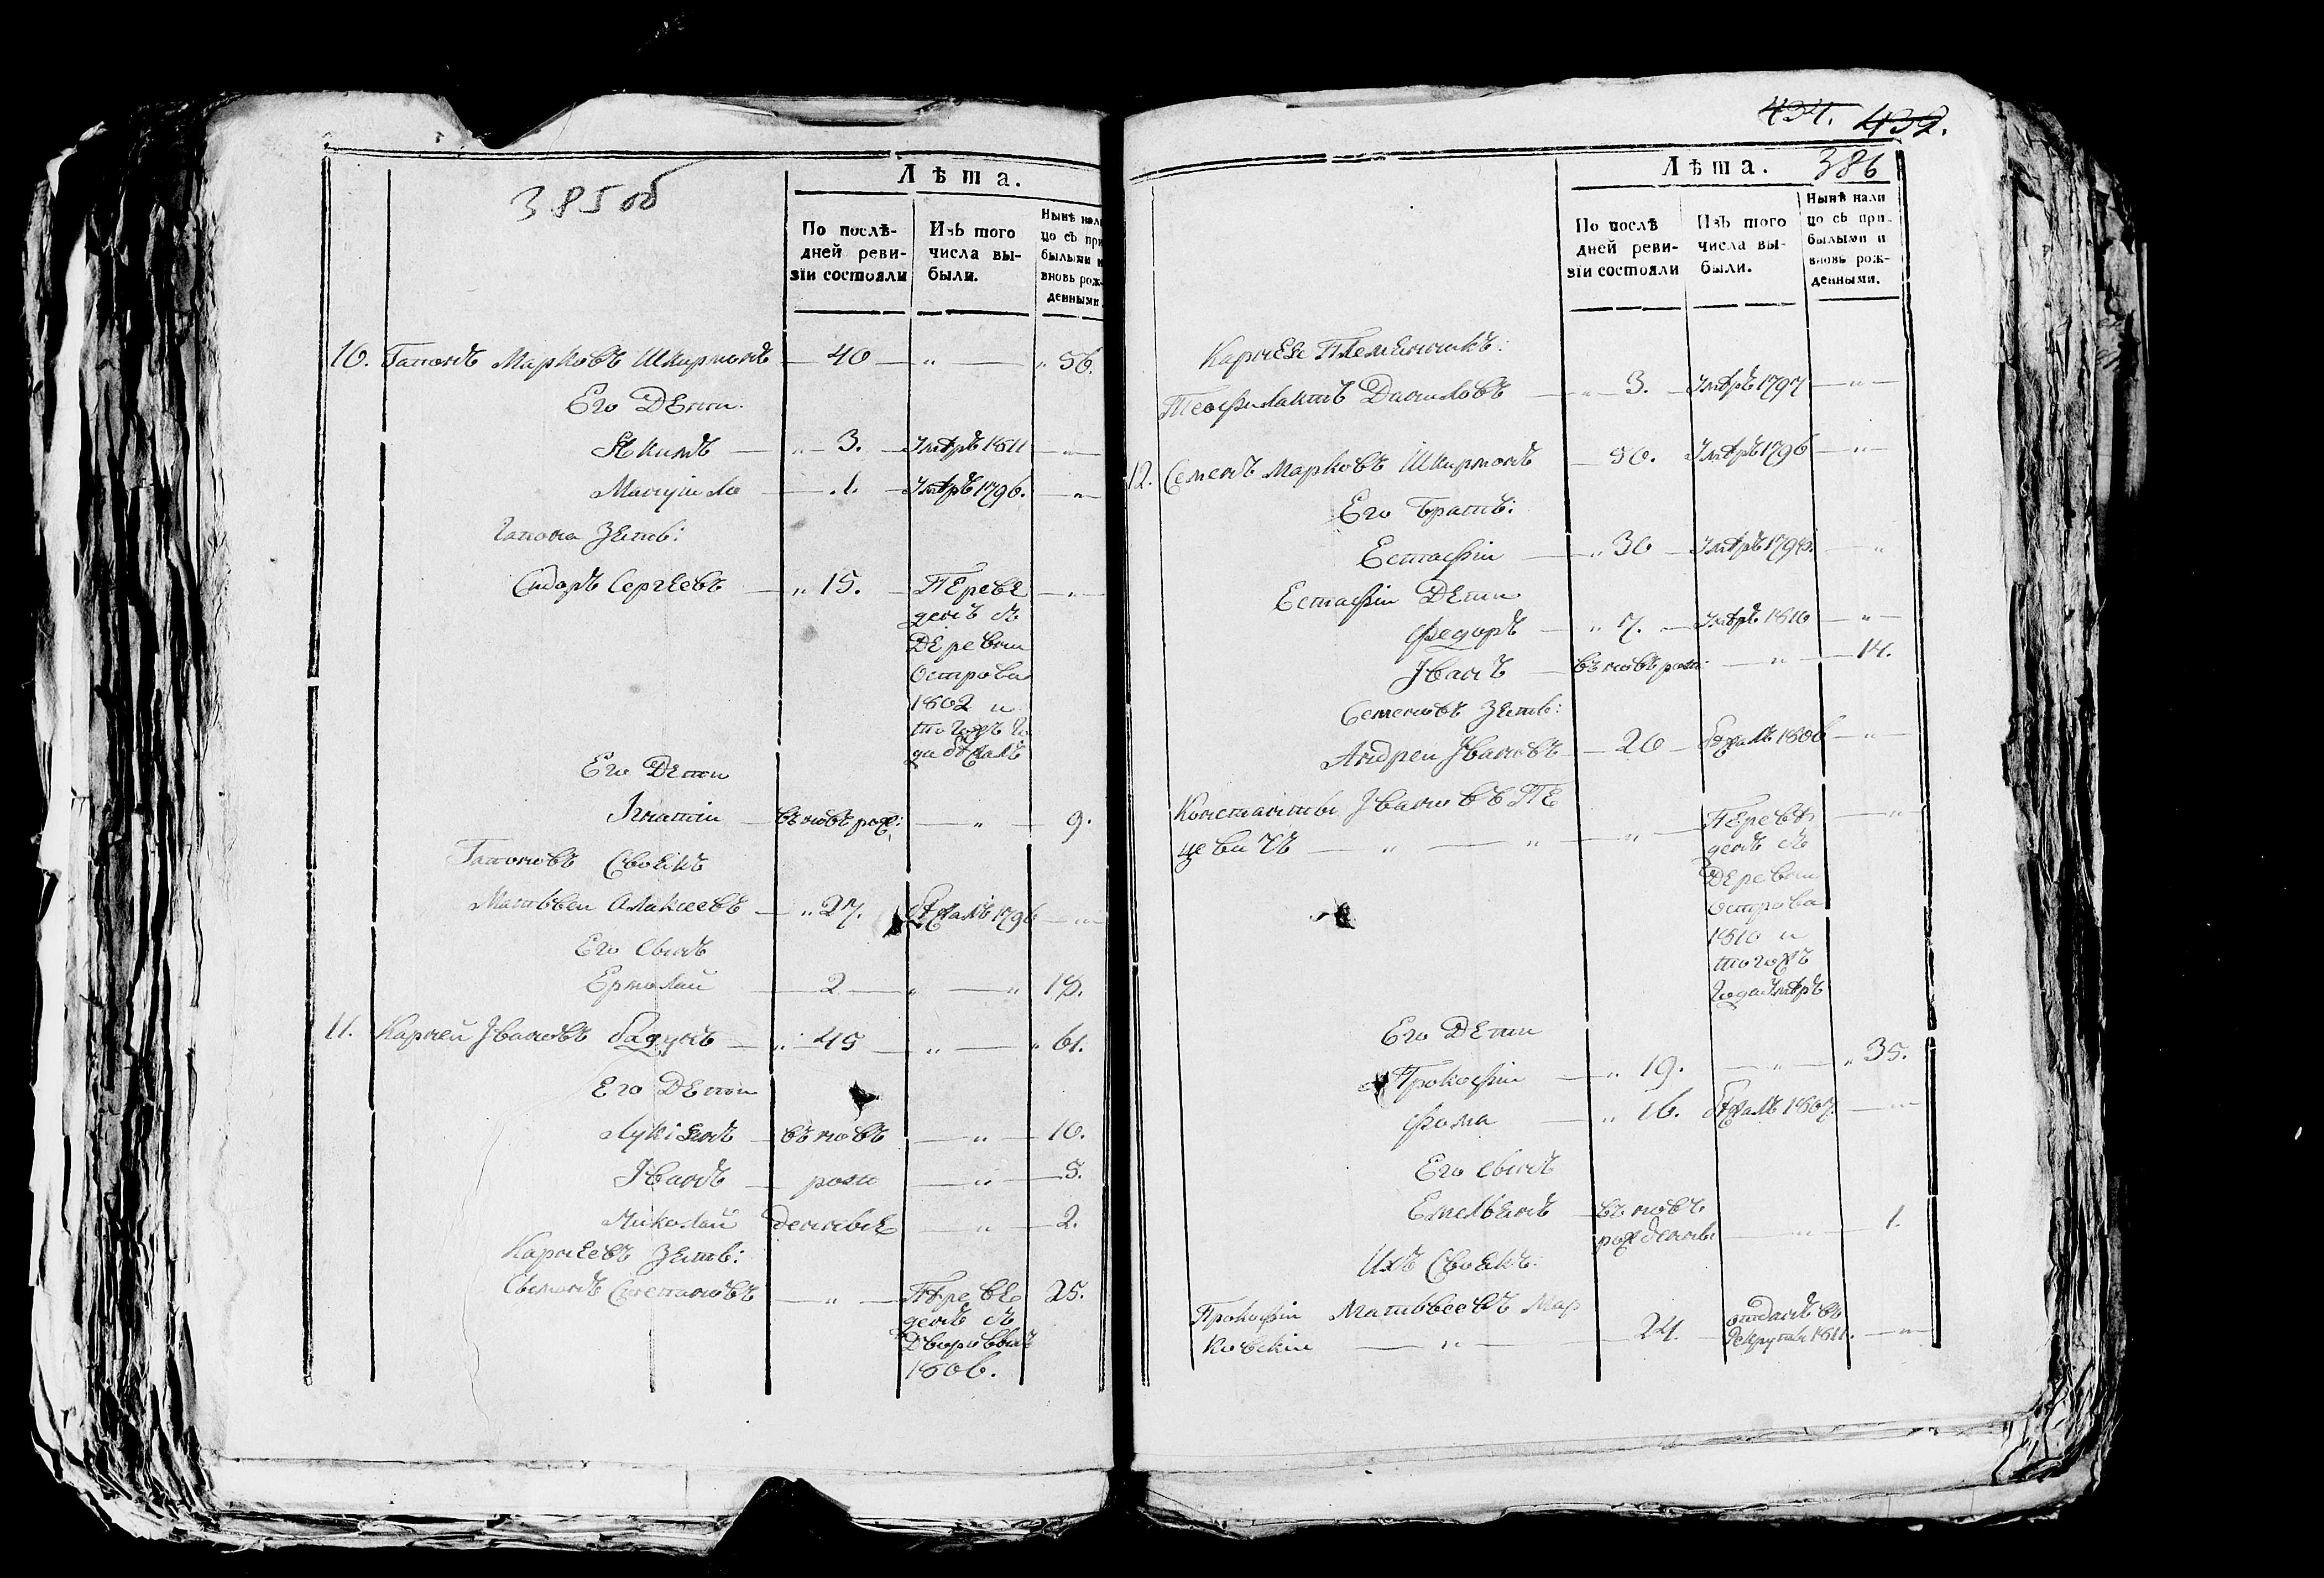 385 об
Лѣта.
По послѣ-
дней реви-
зіи состояли
Изъ того
числа вы-
были.
Нынѣ нали
цо съ при
былыми и
вновь рож-
денными.
10. Гапонъ Марковъ Шкирмонъ — 40 — " — " 56.
Его Дети.
Якимъ — " 3. — Умѣръ 1811 — "
Мануило — .1. — Умѣръ 1796. — "
Гапона Зять:
Сидоръ Сергѣевъ — " 15. — Переве — "
денъ съ
Деревни
Острова
1802 и
тогожъ го
да бѣжалъ
Его Дети
Игнатіи — въновь рож: — " — 9.
Гапоновъ Своякъ
Матввеи Алексеевъ — " 27. бѣжалъ 1796 — "
Его Сынъ
Ермолаи — 2 — " — " 18.
11. Карнеи Івановъ — " 45 — " — " 61.
Его Дети
Лукіянъ — въновь — " — 10.
Іванъ — рож — " — 5.
Николай денные — " — 2.
Карнеевъ Зять:
Степановъ — " — Переве 25.
денъ съ
Дворовыхъ
1806.
434. 439.
Лѣта. 386
По послѣ
дней реви-
зіи состояли
Изъ того
числа вы-
были.
Нынѣ нали
цо съ при-
былыми и
вновь рож-
денными.
Карнея Племянникъ:
Теофилактъ Даниловъ — " 3. Умѣръ 1797 — "
12. Семенъ Марковъ Шкирмонъ — 50. Умѣръ 1796 — "
Его Братъ:
Естафіи — " 30 — Умѣръ — "
Естафіи Дети
Федоръ — " 7. — Умѣръ 1810 — "
Іванъ — въновь рож: — " — 14.
Семеновъ Зять:
Андреи Івановъ — 20 — бѣжалъ 1806 — "
Івановъ Пе
цевичъ — " — " — " — Переве — "
денъ съ
Деревни
Острова
1810 и
тогожъ
года Умѣръ
Его Дети
Прокофіи — " 19. — " — " 35.
Фома — " 16. бѣжалъ 1807. — "
Его Сынъ
Емельянъ — въновь
рожденны — " — 1.
Ихъ Своякъ:
Прокофіи Матввеевъ Мар
ковскіи — " — 24. — отданъ въ
рекруты 1811. — "